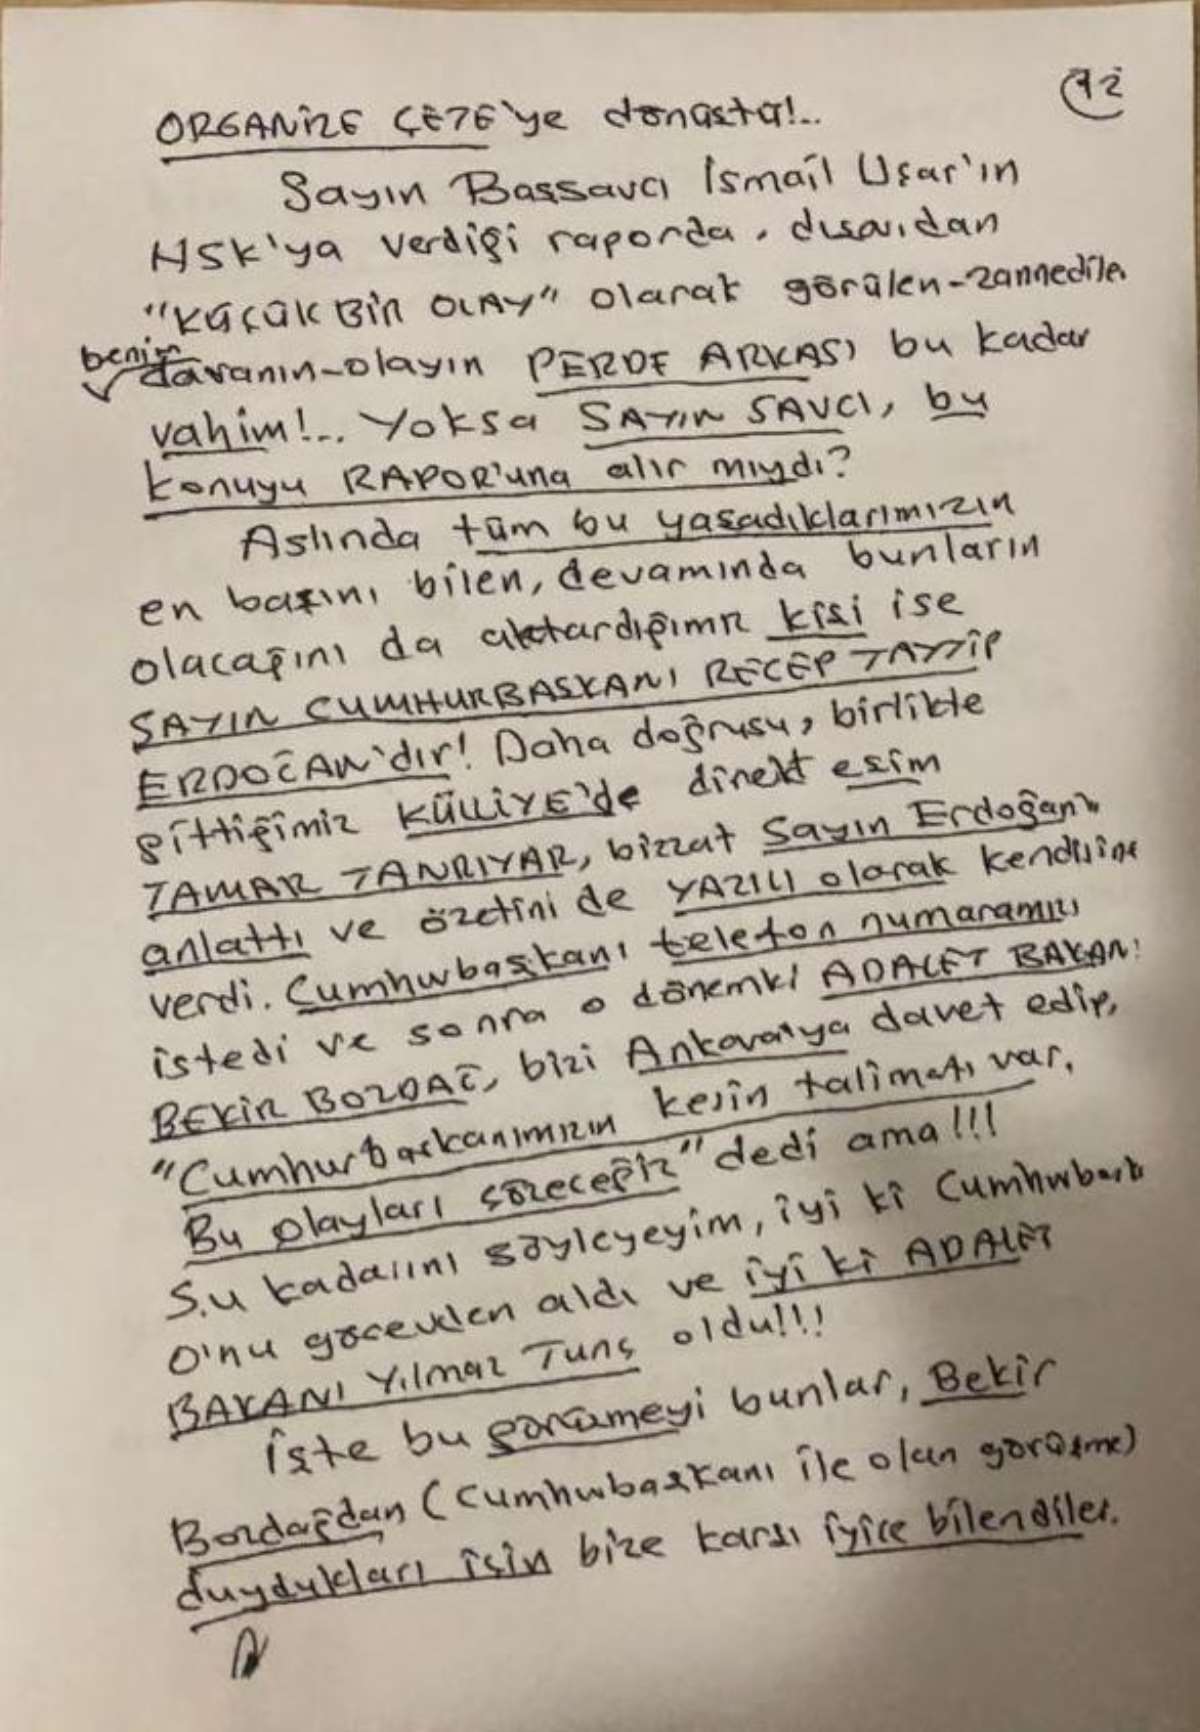 12
ORGANİZE ÇETE'ye dönüştü!..
Sayın Başsavcı İsmail Uçar'ın
HSK'ya verdiği raporda, dışarıdan
"KÜÇÜK BİR OLAY" olarak görülen-zannedilen
benim
davanın-olayın PERDE ARKASI bu kadar
vahim!... Yoksa SAYIN SAVCI, bu
konuyu RAPOR'una alır mıydı?
Aslında tüm bu yaşadıklarımızın
en başını bilen, devamında bunların
olacağını da aktardığımız kişi ise
SAYIN CUMHURBAŞKANI RECEP TAYYİP
ERDOĞAN'dır! Daha doğrusu, birlikte
gittiğimiz KÜLLİYE'de direkt eşim
TAMAR TANRIYAR, bizzat Sayın Erdoğan'a
anlattı ve özetini de YAZILI olarak kendisine
verdi. Cumhurbaşkanı telefon numaramızı
istedi ve sonra o dönemki ADALET BAKANI
BEKİR BOZDAĞ, bizi Ankara'ya davet edip,
"Cumhurbaşkanımızın kesin talimatı var.
Bu olayları çözeceğiz" dedi ama!!!
Şu kadarını söyleyeyim, iyi ki Cumhurbaşkanı
O'nu görevden aldı ve iyi ki ADALET
BAKANI Yılmaz Tunç oldu!!!
İşte bu görüşmeyi bunlar, Bekir
Bozdağdan (Cumhurbaşkanı ile olan görüşme)
duydukları için bize karşı iyice bilendiler.